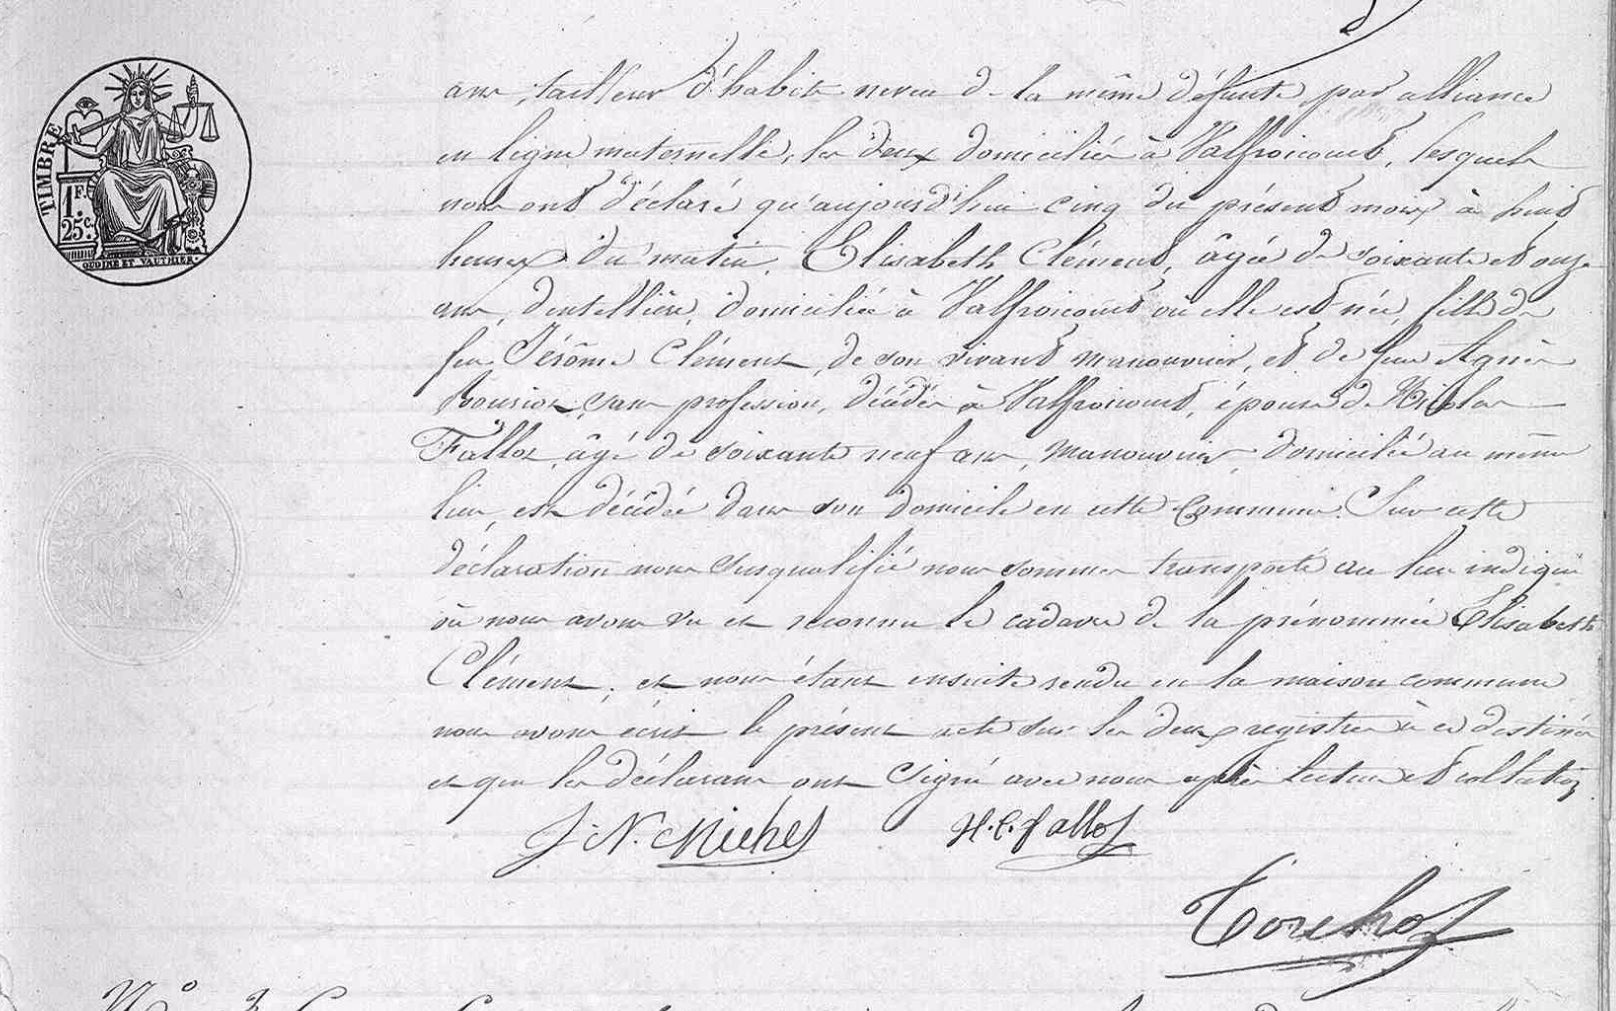 TIMBRE
1 F.
25 c.
OUDINE ET VAUTHIER.
ans, tailleur d'habits neveu de la même défunte par alliance
en ligne maternelle, les deux domiciliés à Valfroicourt, lesquels
nous ont déclaré qu'aujourd'hui cinq du présent mois à huit
heures du matin, Elisabeth Clément, âgée de soixante et onze
ans, dentellière, domiciliée à Valfroicourt où elle est née, fille de
feu Jérôme Clément, de son vivant manouvrier, et de feue Agnès
sans profession, décédés à Valfroicourt, épouse de Nicolas
Fallot, âgé de soixante neuf ans, manouvrier, domicilié au même
lieu, est décédée dans son domicile en cette commune. Sur cette
déclaration nous susqualifié nous sommes transporté au lieu indiqué
où nous avons vu et reconnu le cadavre de la prénommée Elisabeth
Clément, et nous étant ensuite rendu en la maison commune
nous avons écrit le présent acte sur les deux registres à ce destinés
et que les déclarans ont signé avec nous après lecture et collation
J. N. Michel H. C. Fallot
N°